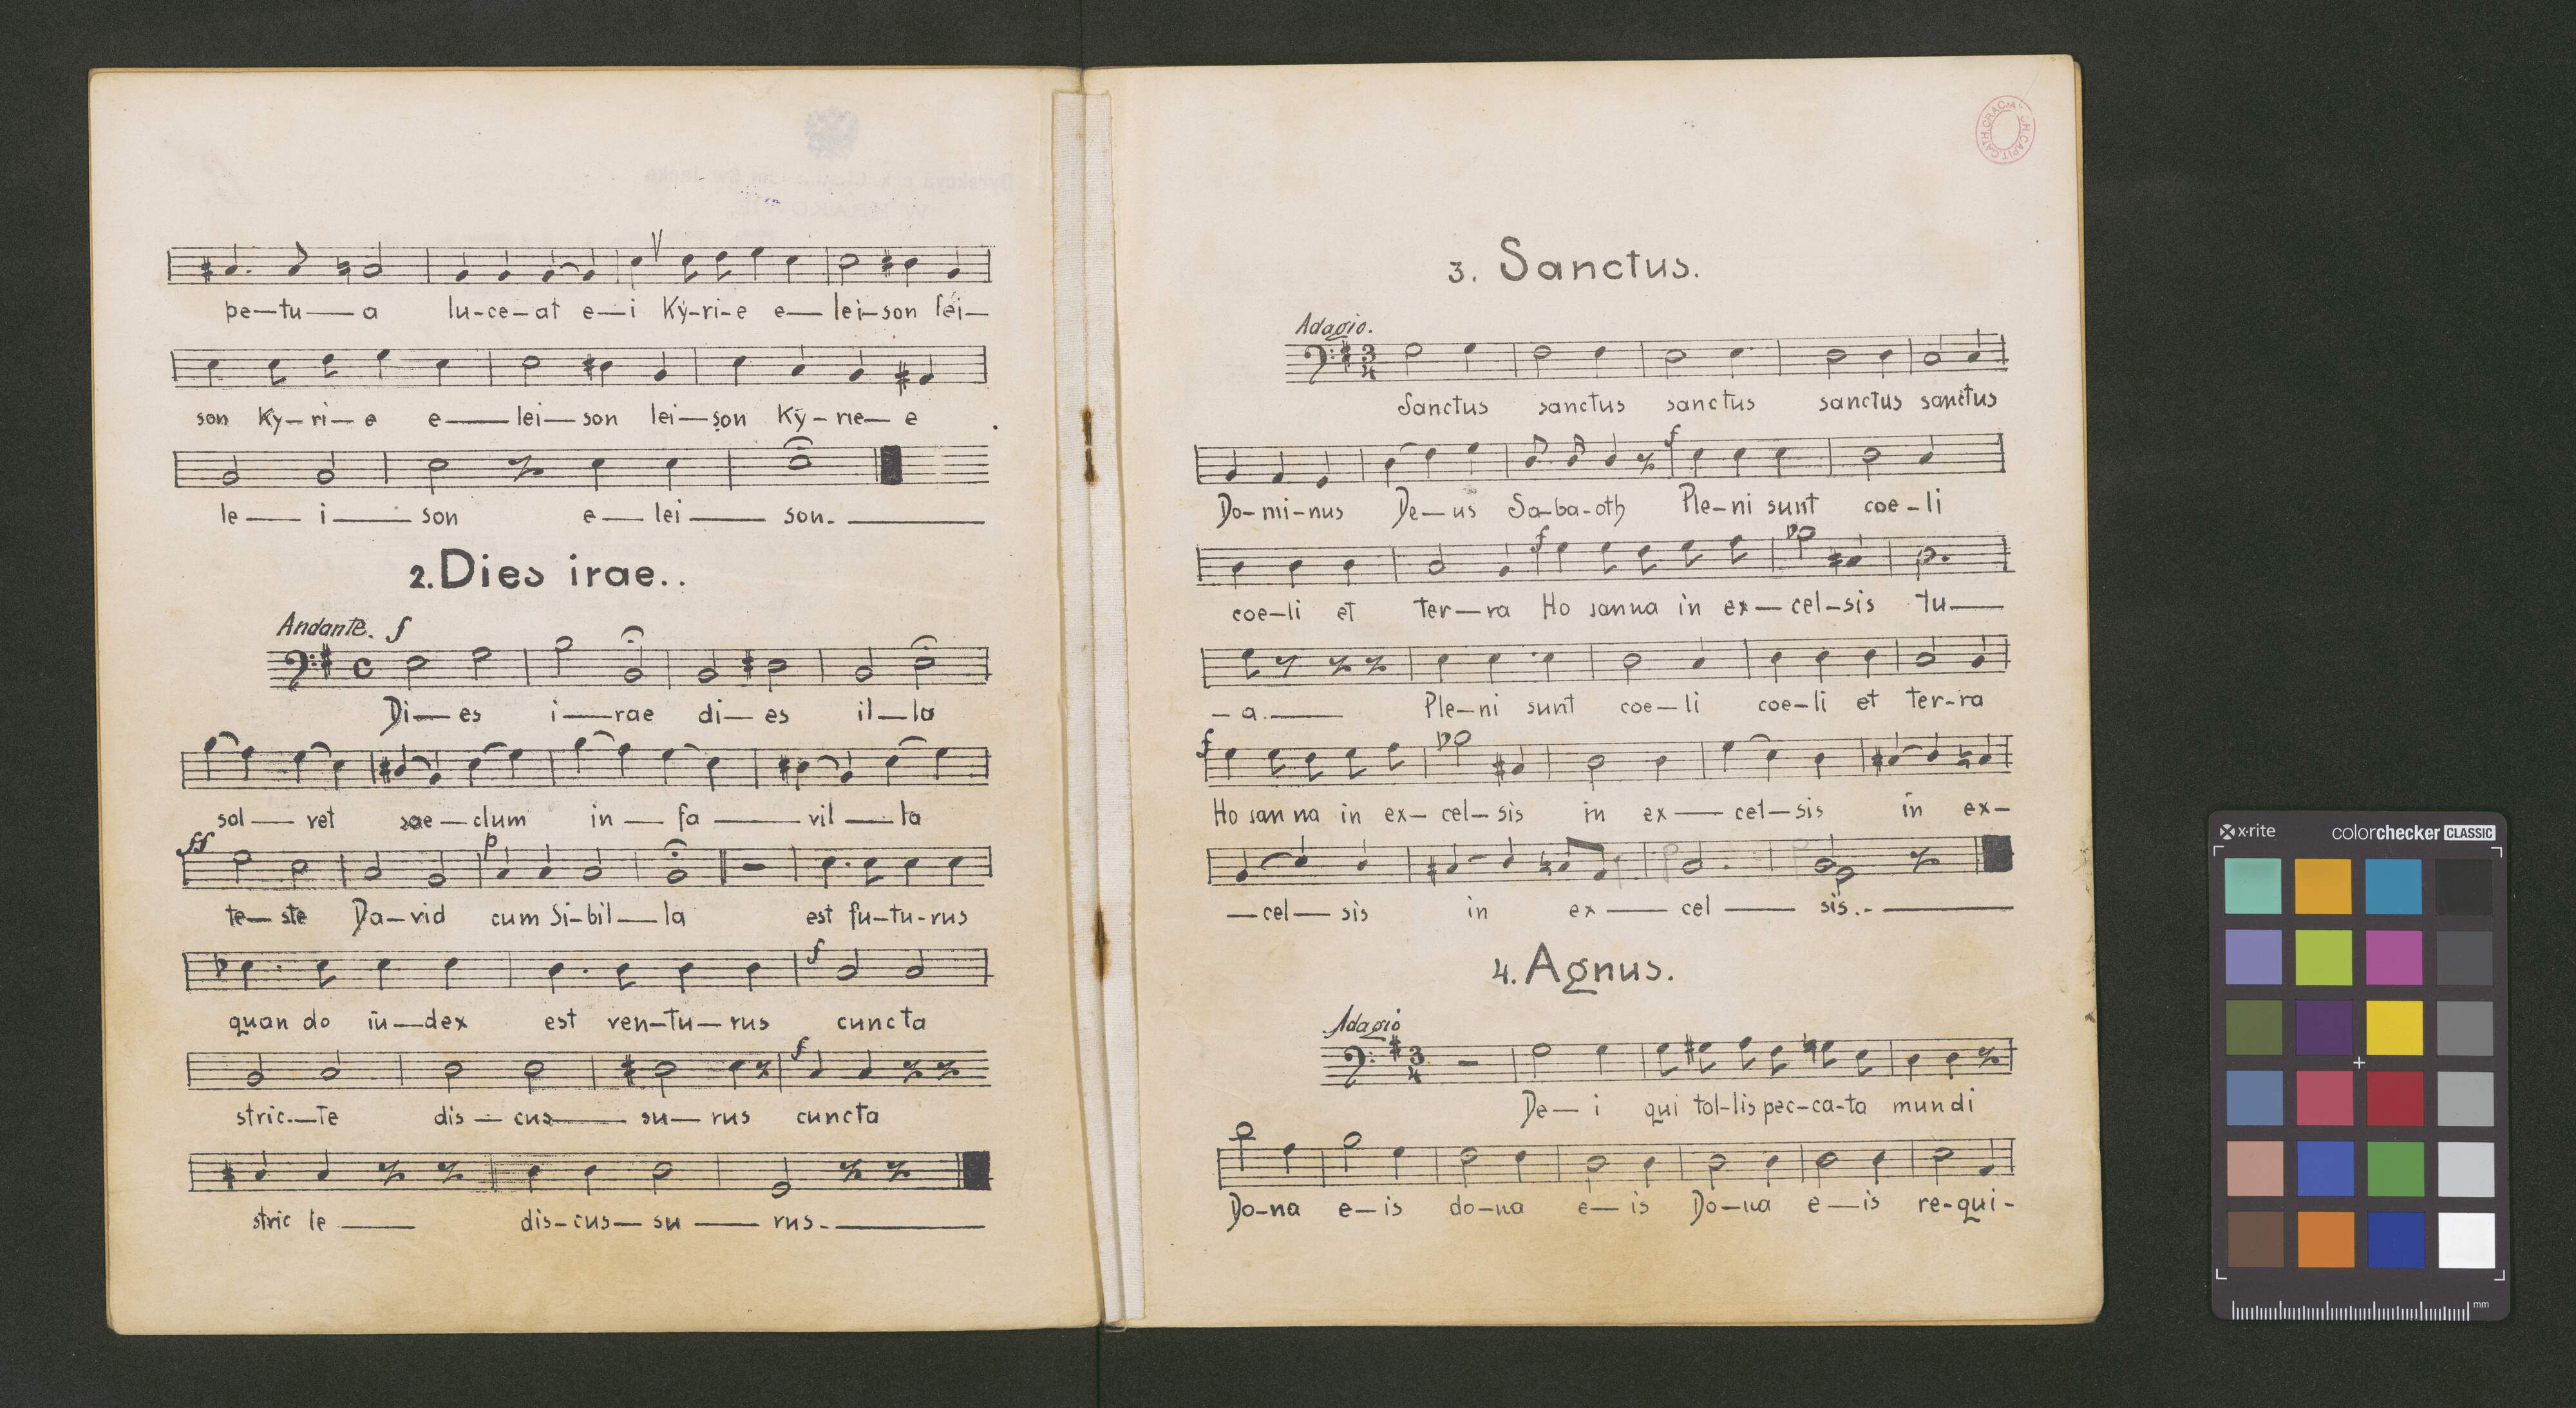 pe—tu—a lu-ce-at e—i Ky-ri-e e—lei-son lei—
son Ky-ri-e e—lei-son lei-son Ky-rie-e
le—i—son e-lei—son.
2. Dies irae..
Andante. f
Di—es i—rae di-es il-la
sol—vet sae-clum in-fa—vil—la
ff p
te-ste Da-vid cum Si-bil-la est fu-tu-rus
f
quan do iu-dex est ven-tu-rus cuncta
f
stric.-te dis-cus—su-rus cuncta
stric te— dis-cus-su—rus.
3. Sanctus.
Adagio.
3 4
Sanctus sanctus sanctus sanctus sanctus
f
Do-mi-nus De-us Sa-ba-oth Ple-ni sunt coe-li
f
coe-li et ter-ra Ho sanna in ex-cel-sis tu—
-a.— Ple-ni sunt coe-li coe-li et ter-ra
f
Ho san na in ex-cel-sis in ex—cel-sis in ex-
-cel-sis in ex—cel—sis.
4. Agnus.
Adagio
3 4
De-i qui tol-lis pec-ca-ta mundi
Do-na e-is do-na e-is Do-na e-is re-qui-
x-rite colorchecker CLASSIC
mm